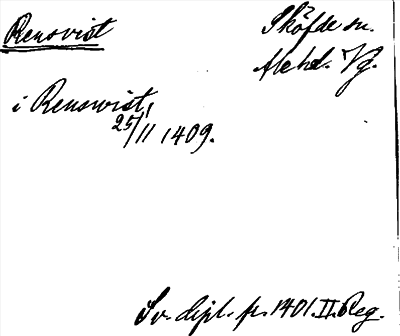 Rensvist
Sköfde sn.
Åse hd. Vg.
i Renswist,
25/11 1409.
Sv. dipl. fr. 1401. II. Reg.